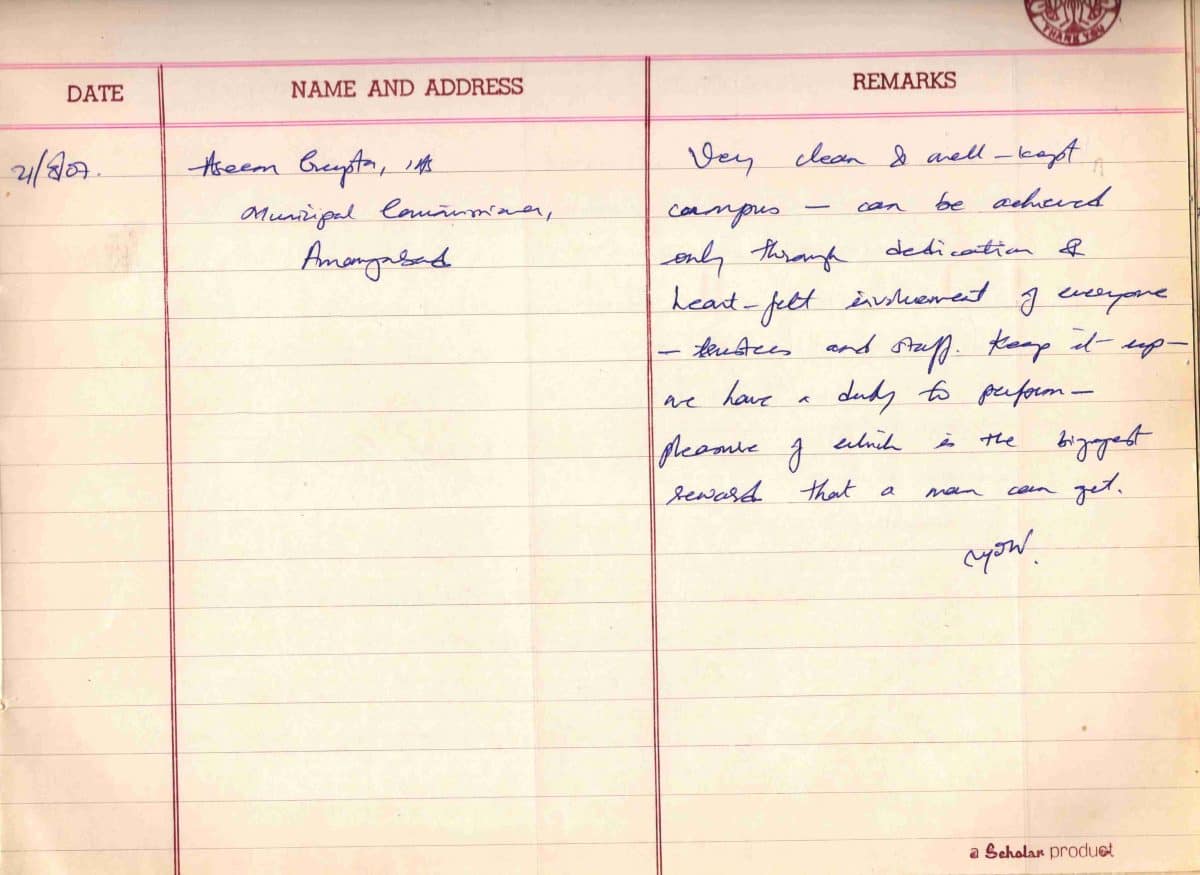 THANK YOU
DATE NAME AND ADDRESS REMARKS
21/8/07. Aseem Gupta, IAS Very clean & well-kept
Municipal Commissioner, campus — can be achieved
Aurangabad only through dedication &
heart-felt involvement of everyone
— trustees and staff. Keep it up —
we have a duty to perform —
pleasure of which is the biggest
reward that a man can get.
a Scholar product